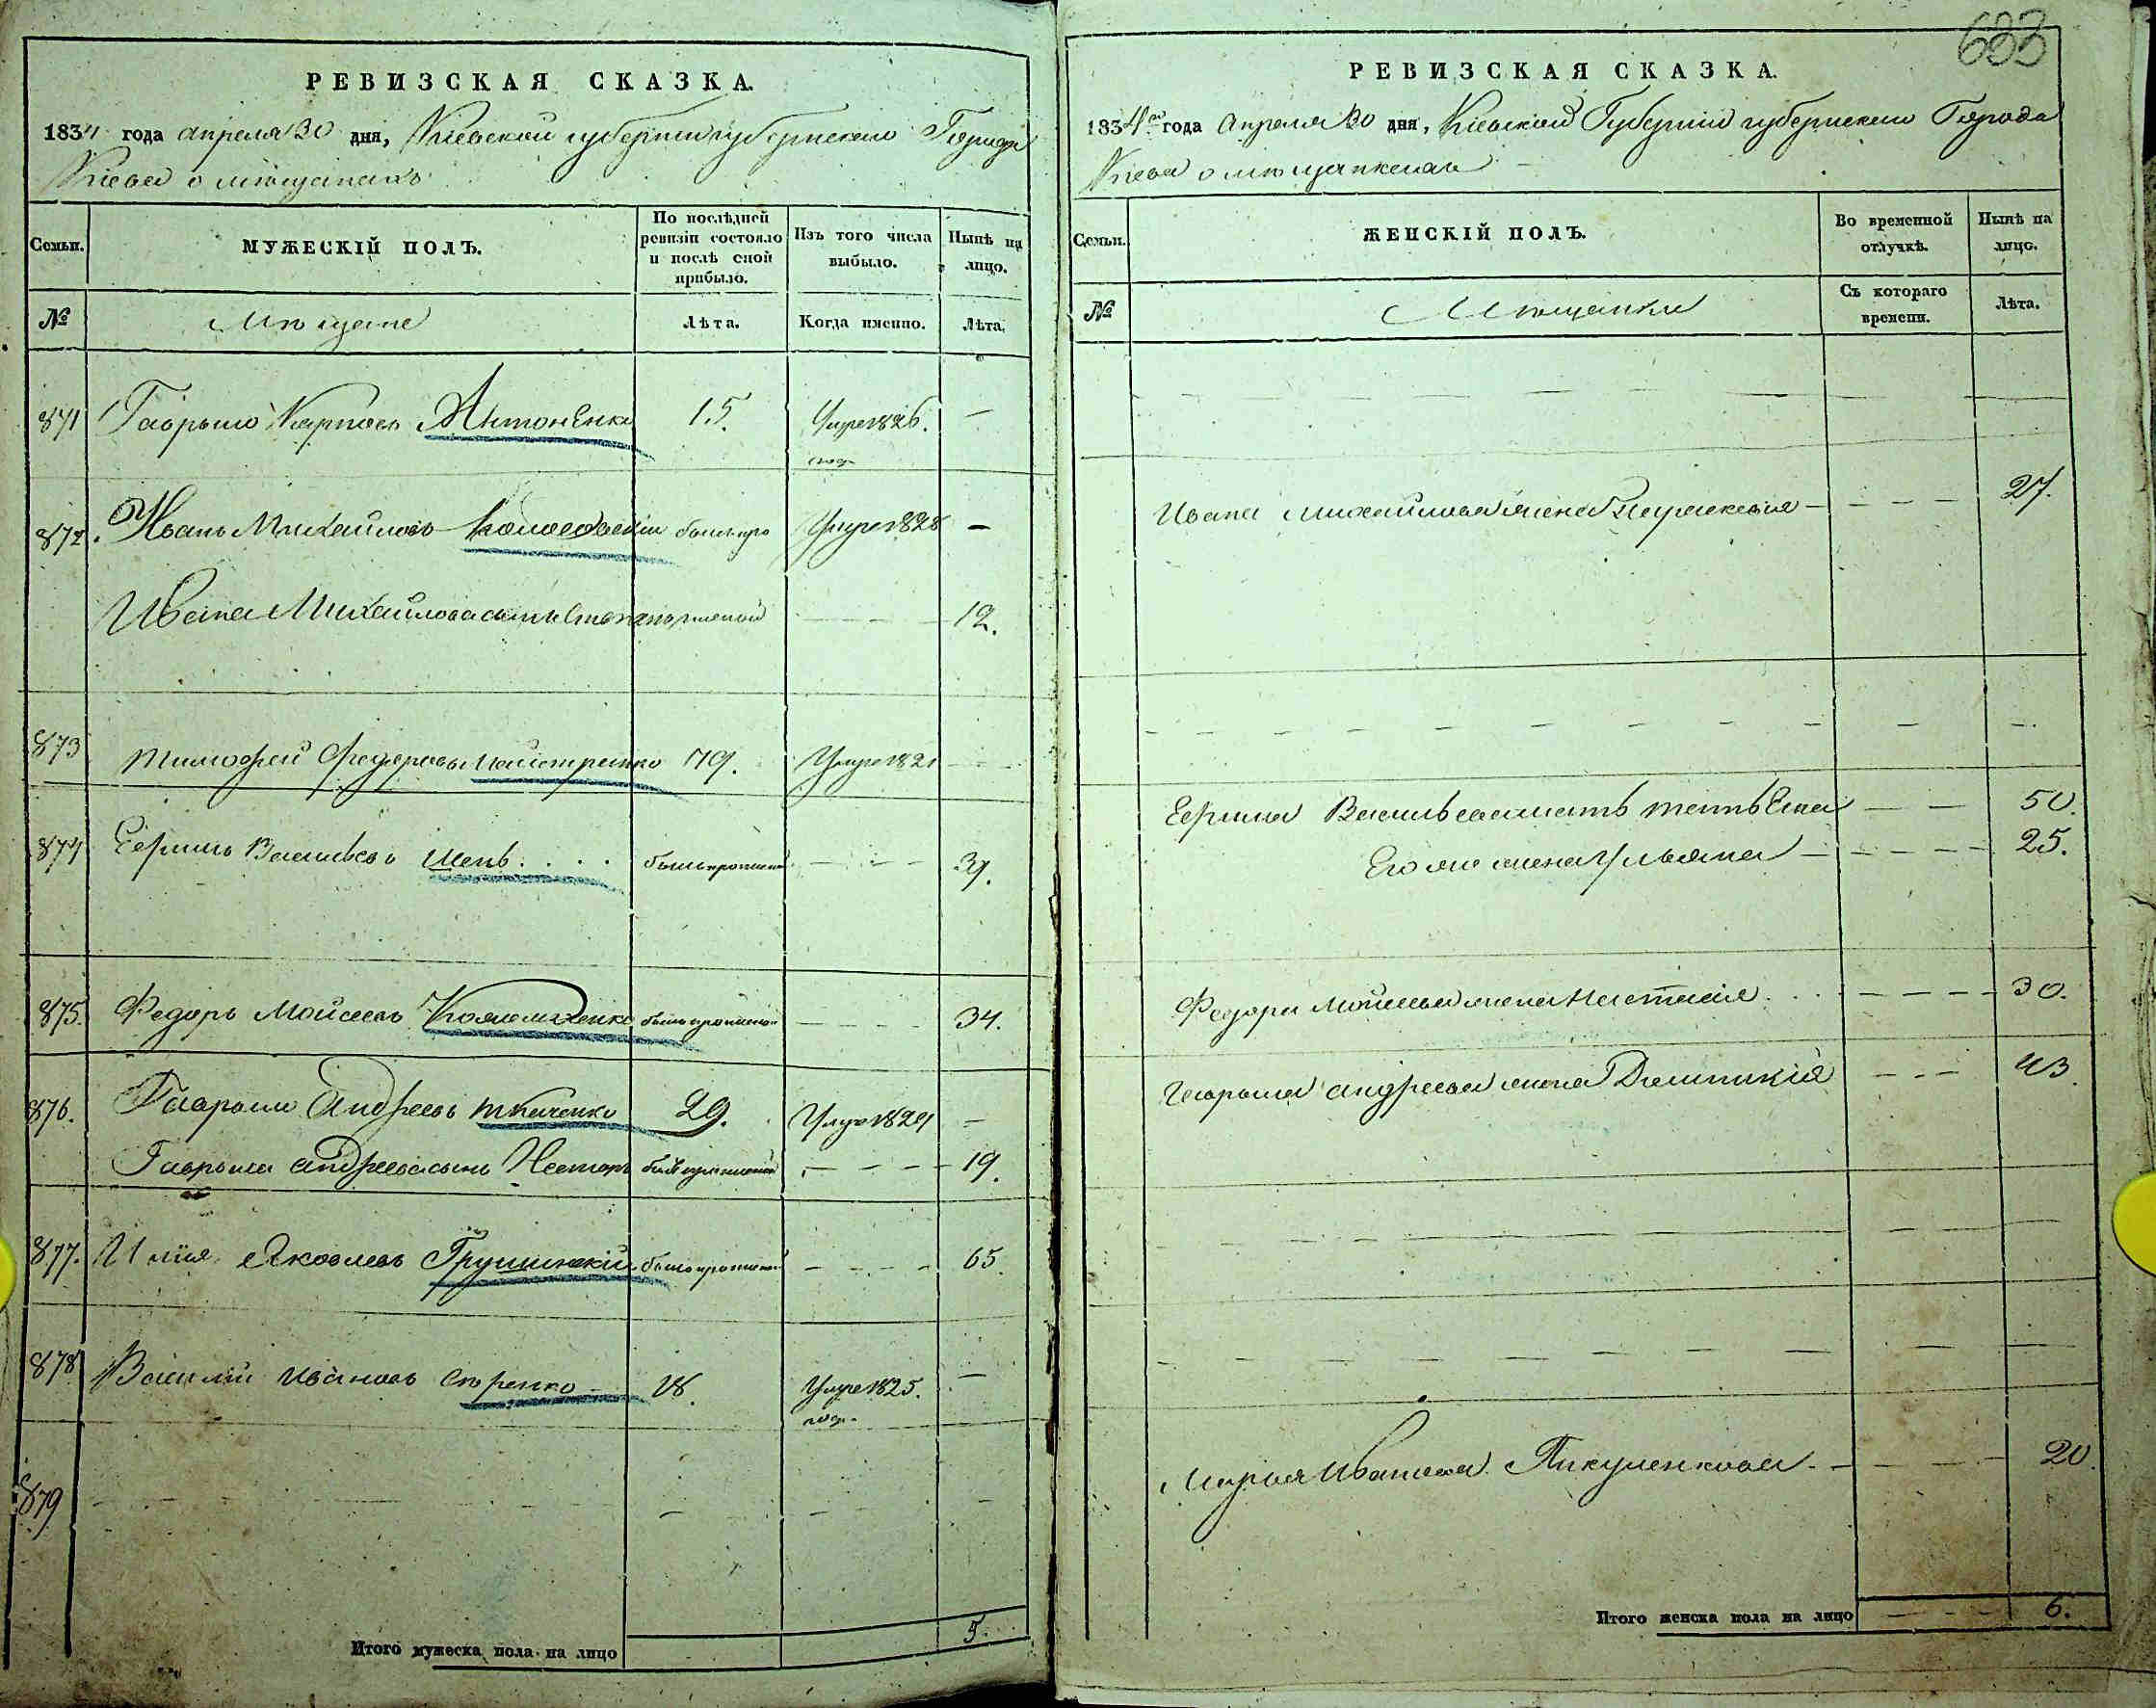 РЕВИЗСКАЯ СКАЗКА.
1834 года апреля 30 дня, Кіевской губерніи губернскаго Города
Кіева о мѣщанахъ
Семьи.
МУЖЕСКІЙ ПОЛЪ.
По послѣдней ревизіи состояло и послѣ оной прибыло.
Изъ того числа выбыло.
Нынѣ на лицо.
№
Мѣщане
Лѣта.
Когда именно.
Лѣта.
871 Гаврыло Карповъ Антоненко 15. Умре 1826. год. —
872. Иванъ Михайловъ былъ про Умре 1828 —
Ивана Михайлова сынъ Степанъ 12.
873 Тимофей Федоровъ 79. Умре 1821
874 Ефримъ Васильевъ былъ пропис 39.
875. Федоръ Мойсеевъ былъ пропис 34.
876. Гаврыло Андреевъ Ткаченко 29. Умре 1829 —
Гаврыла Андреева сынъ Несторъ былъ пропис 19.
877. Илія Яковлевъ Грушинскій былъ пропис 65.
878 Василій Ивановъ Умре 1825. год. —
879
Итого мужеска пола на лицо 5.
633
РЕВИЗСКАЯ СКАЗКА.
1834 года Апреля 30 дня, Кіевской Губерніи губернскаго Города
Кіева о мѣщанкахъ
Семьи.
ЖЕНСКІЙ ПОЛЪ.
Во временной отлучкѣ.
Нынѣ на лицо.
№
Мѣщанки
Съ котораго времени.
Лѣта.
Ивана Михайлова жена Параскевія — 27.
Ефрима Васильева мать 50.
Его же жена Ульяна — 25.
Федора Мойсеева жена Настасія 30.
Гаврыла Андреева жена 43.
Марья Иванова Пикуленкова — 20.
Итого женска пола на лицо 6.